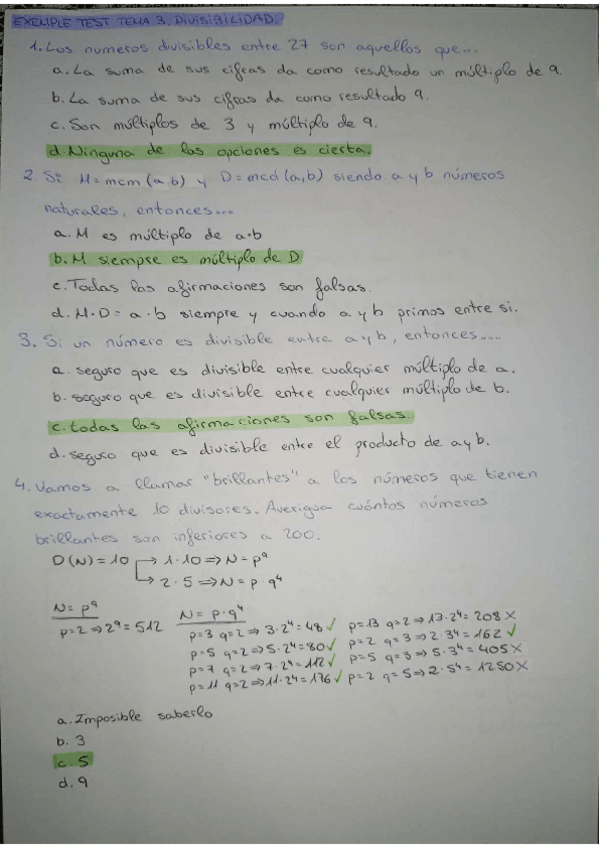 EXEMPLE TEST TEMA 3. DIVISIBILIDAD.
1. Los numeros divisibles entre 27 son aquellos que...
a. La suma de sus cifras da como resultado un múltiplo de 9.
b. La suma de sus cifras da como resultado 9.
c. Son múltiplos de 3 y múltiplo de 9.
d. Ninguna de las opciones es cierta.
2. Si M=mcm(a,b) y D=mcd(a,b) siendo a y b números
naturales, entonces...
a. M es múltiplo de a·b
b. M siempre es múltiplo de D
c. Todas las afirmaciones son falsas.
d. M·D = a·b siempre y cuando a y b primos entre si.
3. Si un número es divisible entre a y b, entonces....
a. seguro que es divisible entre cualquier múltiplo de a.
b. seguro que es divisible entre cualquier múltiplo de b.
c. todas las afirmaciones son falsas.
d. seguro que es divisible entre el producto de a y b.
4. Vamos a llamar "brillantes" a los números que tienen
exactamente 10 divisores. Averigua cuántos números
brillantes son inferiores a 200.
D(N)=10 → 1·10 ⇒ N=p⁹
→ 2·5 ⇒ N=p·q⁴
N=p⁹
p=2 ⇒ 2⁹=512
N=p·q⁴
p=3 q=2 ⇒ 3·2⁴=48 ✓
p=5 q=2 ⇒ 5·2⁴=80 ✓
p=7 q=2 ⇒ 7·2⁴=112 ✓
p=11 q=2 ⇒ 11·2⁴=176 ✓
p=13 q=2 ⇒ 13·2⁴=208 X
p=2 q=3 ⇒ 2·3⁴=162 ✓
p=5 q=3 ⇒ 5·3⁴=405 X
p=2 q=5 ⇒ 2·5⁴=1250 X
a. Imposible saberlo
b. 3
c. 5
d. 9